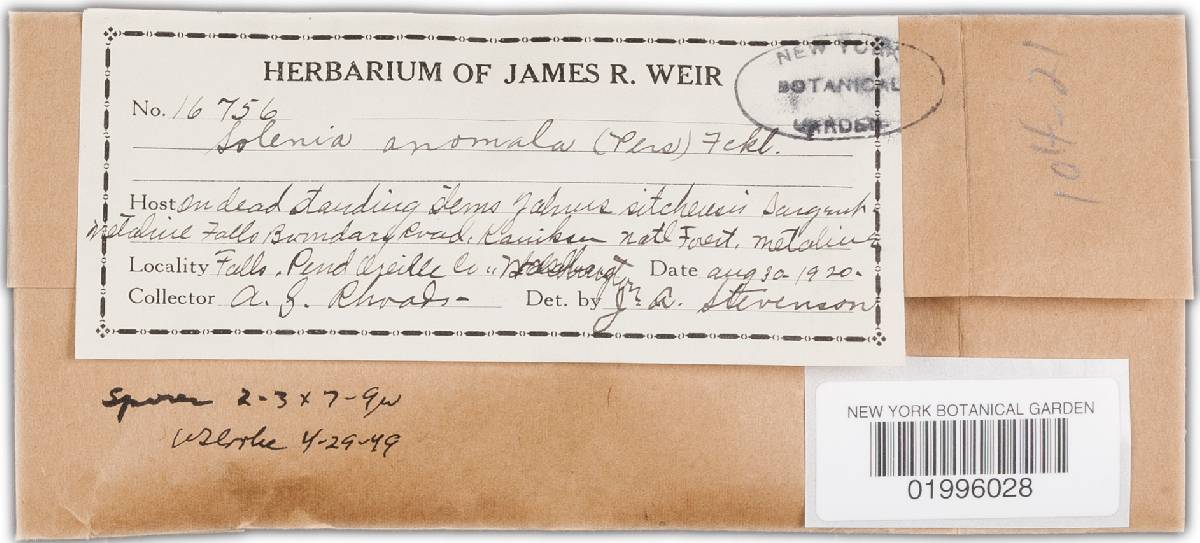 HERBARIUM OF JAMES R. WEIR
NEW YORK
BOTANICAL
GARDEN
104-21
No. 16756
Solenia anomala (Pers) Fckl.
Host on dead standing stems Alnus sitchensis Sargent
Metaline Falls Boundary Road, Kaniksu Natl Forest, Metaline
Locality Falls, Pend Oreille Co., Date Aug 30 1920.
Collector A. S. Rhoads - Det. by J. A. Stevenson
Spores 2-3 x 7-9u
WBCooke 4-29-49
NEW YORK BOTANICAL GARDEN
01996028